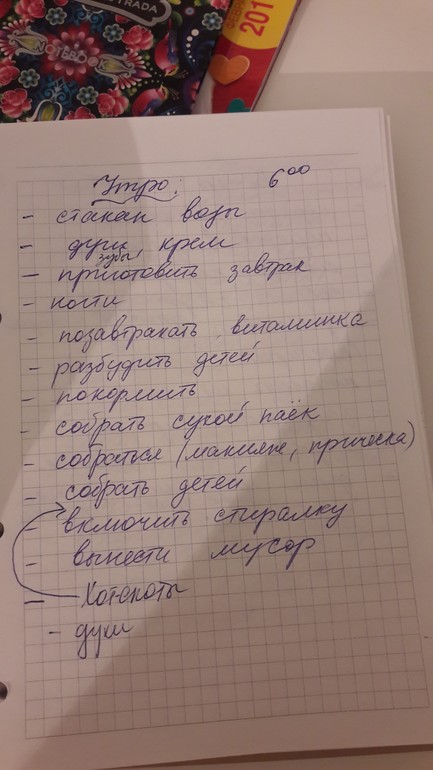 STRADA
NOTEBOOK
201
Утро: 6⁰⁰
- стакан воды
- душ, крем
зубы
- приготовить завтрак
- ногти
- позавтракать, витаминка
- разбудить детей
- покормить
- собрать сухой паёк
- собраться (макияж, прическа)
- собрать детей
- включить стиралку
- вынести мусор
-
- душ